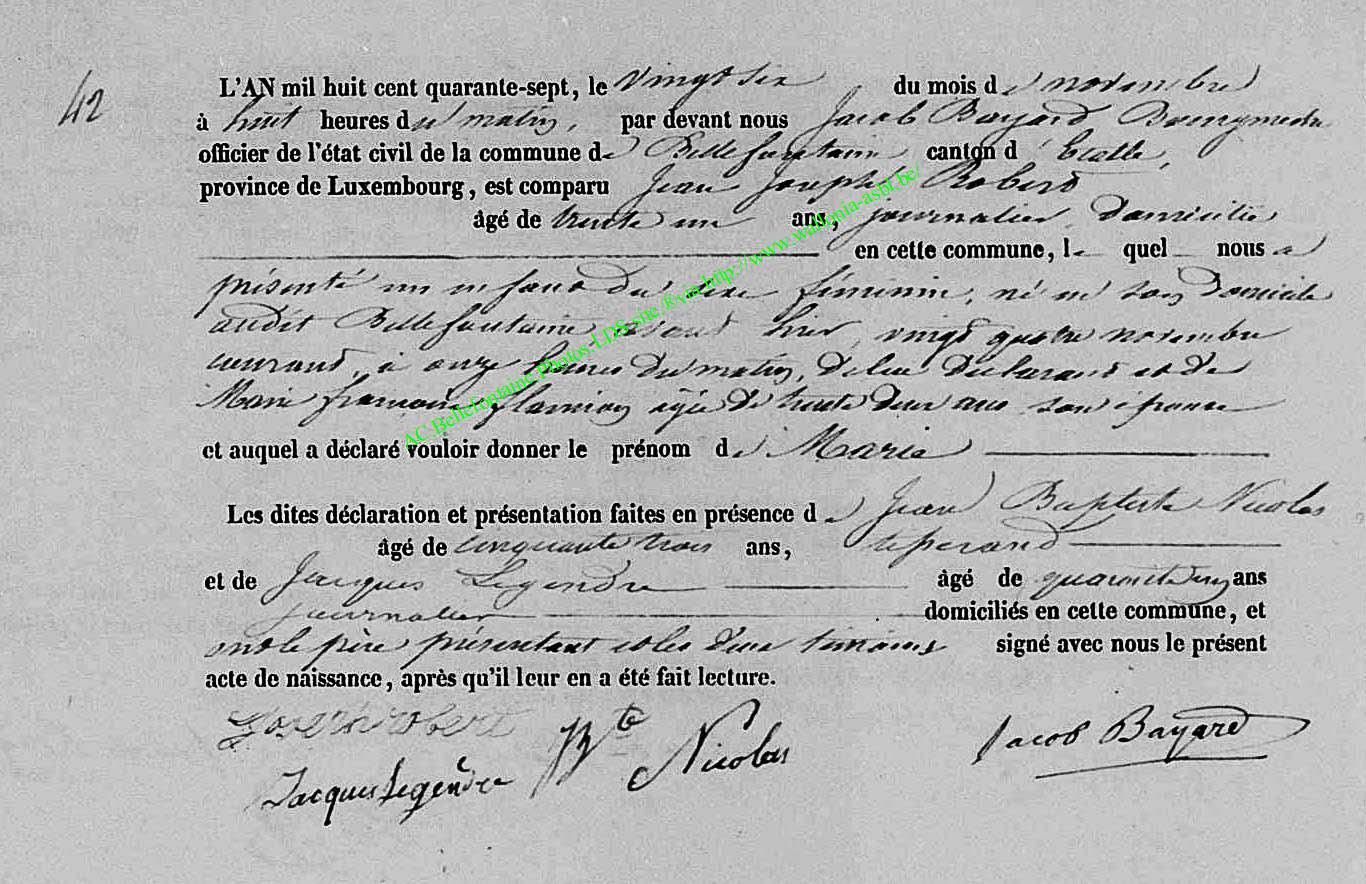 42
L'AN mil huit cent quarante-sept, le vingt six du mois de novembre
à huit heures du matin, par devant nous Jacob Bayard Bourgmestre
officier de l'état civil de la commune de Bellefontaine canton d'Etalle,
province de Luxembourg, est comparu Jean Joseph Robert
âgé de trente un ans, journalier, domicilié
en cette commune, lequel nous a
présenté un enfant du sexe féminin, né en son domicile
audit Bellefontaine avant hier, vingt quatre novembre
courant, à onze heures du matin, de lui déclarant et de
Marie françoise flamion agée de trente deux ans son épouse
et auquel a déclaré vouloir donner le prénom de Marie
Les dites déclaration et présentation faites en présence de Jean Baptiste Nicolas
âgé de cinquante trois ans, tisserand
et de Jacques Legendre âgé de quarante ans
journalier domiciliés en cette commune, et
ont le père présentant et les deux témoins signé avec nous le présent
acte de naissance, après qu'il leur en a été fait lecture.
Joseph robert
Bte Nicolas
Jacob Bayard
Jacques Legendre
AC.Bellefontaine.Photos.LDS.site./via.http://www.wallonia-asbl.be/